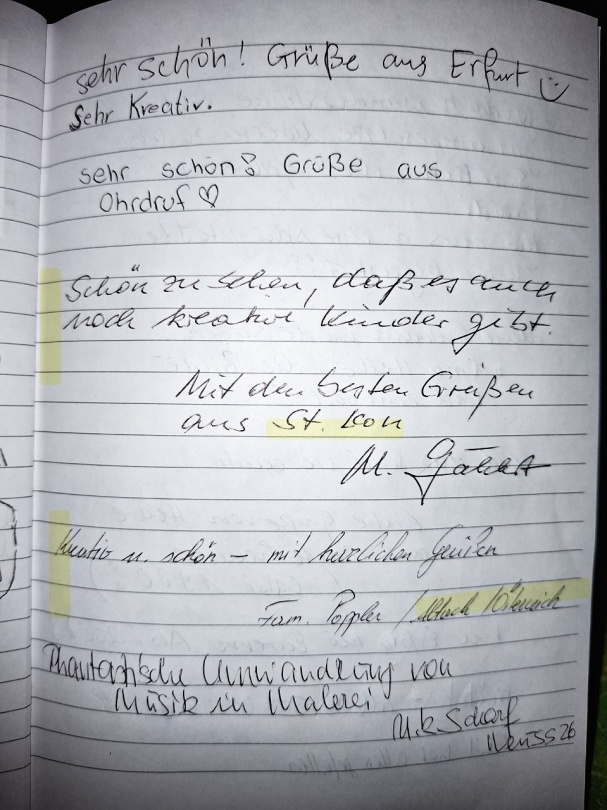 sehr schön! Grüße aus Erfurt
Sehr Kreativ.
sehr schön! Grüße aus
Ohrdruf
Schön zu sehen, daß es auch
noch kreative Kinder gibt.
Mit den besten Grüßen
aus St. Leon
M.
Kreativ u. schön – mit herzlichen Grüßen
Fam. Poppler / Villach / Österreich
Phantastische Umwandlung von
Musik in Malerei
U. k. Scharf
Neuss 26